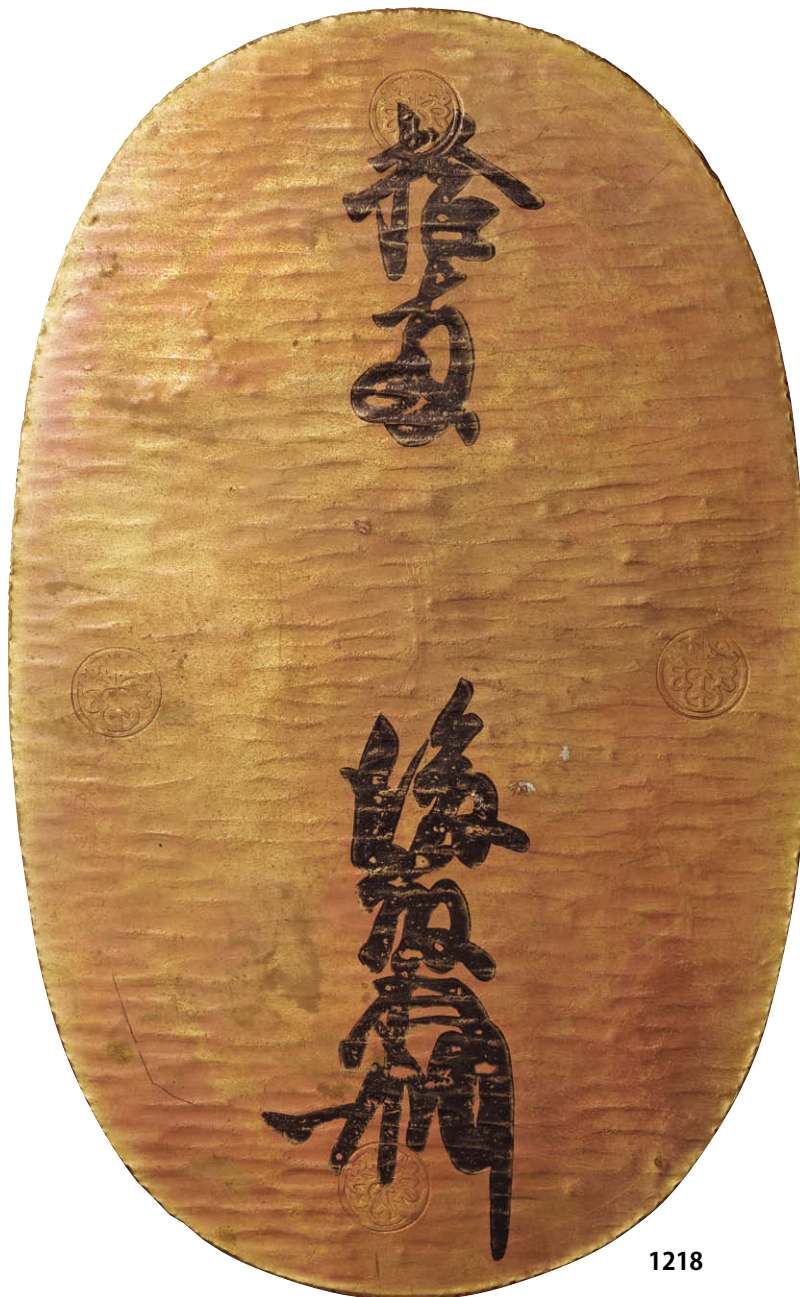 拾両
後藤
1218